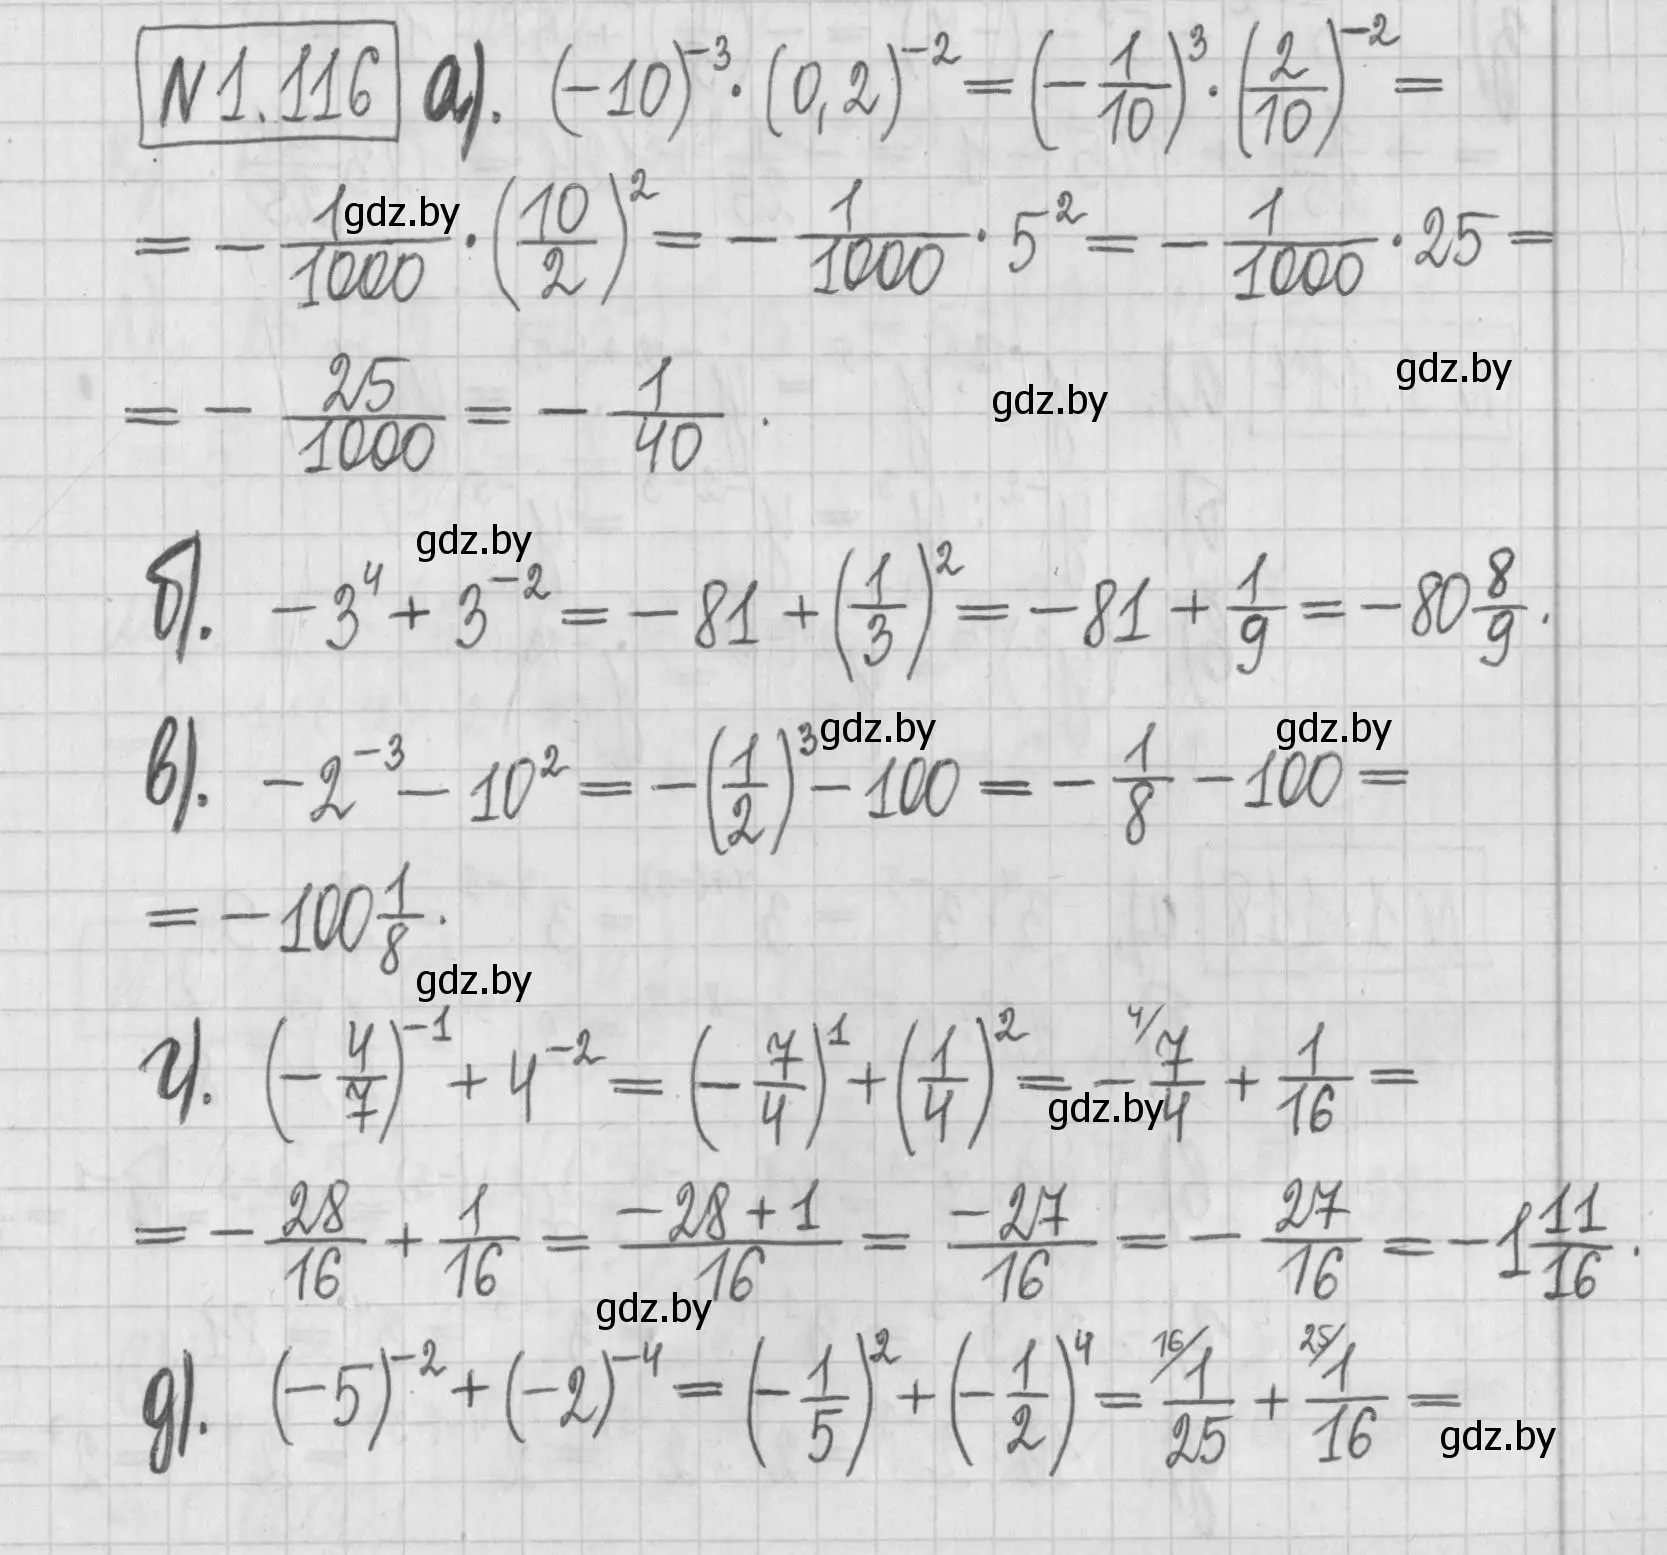 №1.116 а). (-10)^{-3} · (0,2)^{-2} = (-1/10)^3 · (2/10)^{-2} =
= - 1/1000 · (10/2)^2 = - 1/1000 · 5^2 = - 1/1000 · 25 =
gdz.by
= - 25/1000 = - 1/40 .
gdz.by
gdz.by
gdz.by
б). -3^4 + 3^{-2} = -81 + (1/3)^2 = -81 + 1/9 = -80 8/9 .
gdz.by
gdz.by
в). -2^{-3} - 10^2 = -(1/2)^3 - 100 = - 1/8 - 100 =
= -100 1/8 .
gdz.by
г). (-4/7)^{-1} + 4^{-2} = (-7/4)^1 + (1/4)^2 = - ^{4/}7/4 + 1/16 =
gdz.by
= - 28/16 + 1/16 = (-28+1)/16 = -27/16 = - 27/16 = -1 11/16 .
gdz.by
д). (-5)^{-2} + (-2)^{-4} = (-1/5)^2 + (-1/2)^4 = ^{16/}1/25 + ^{25/}1/16 =
gdz.by